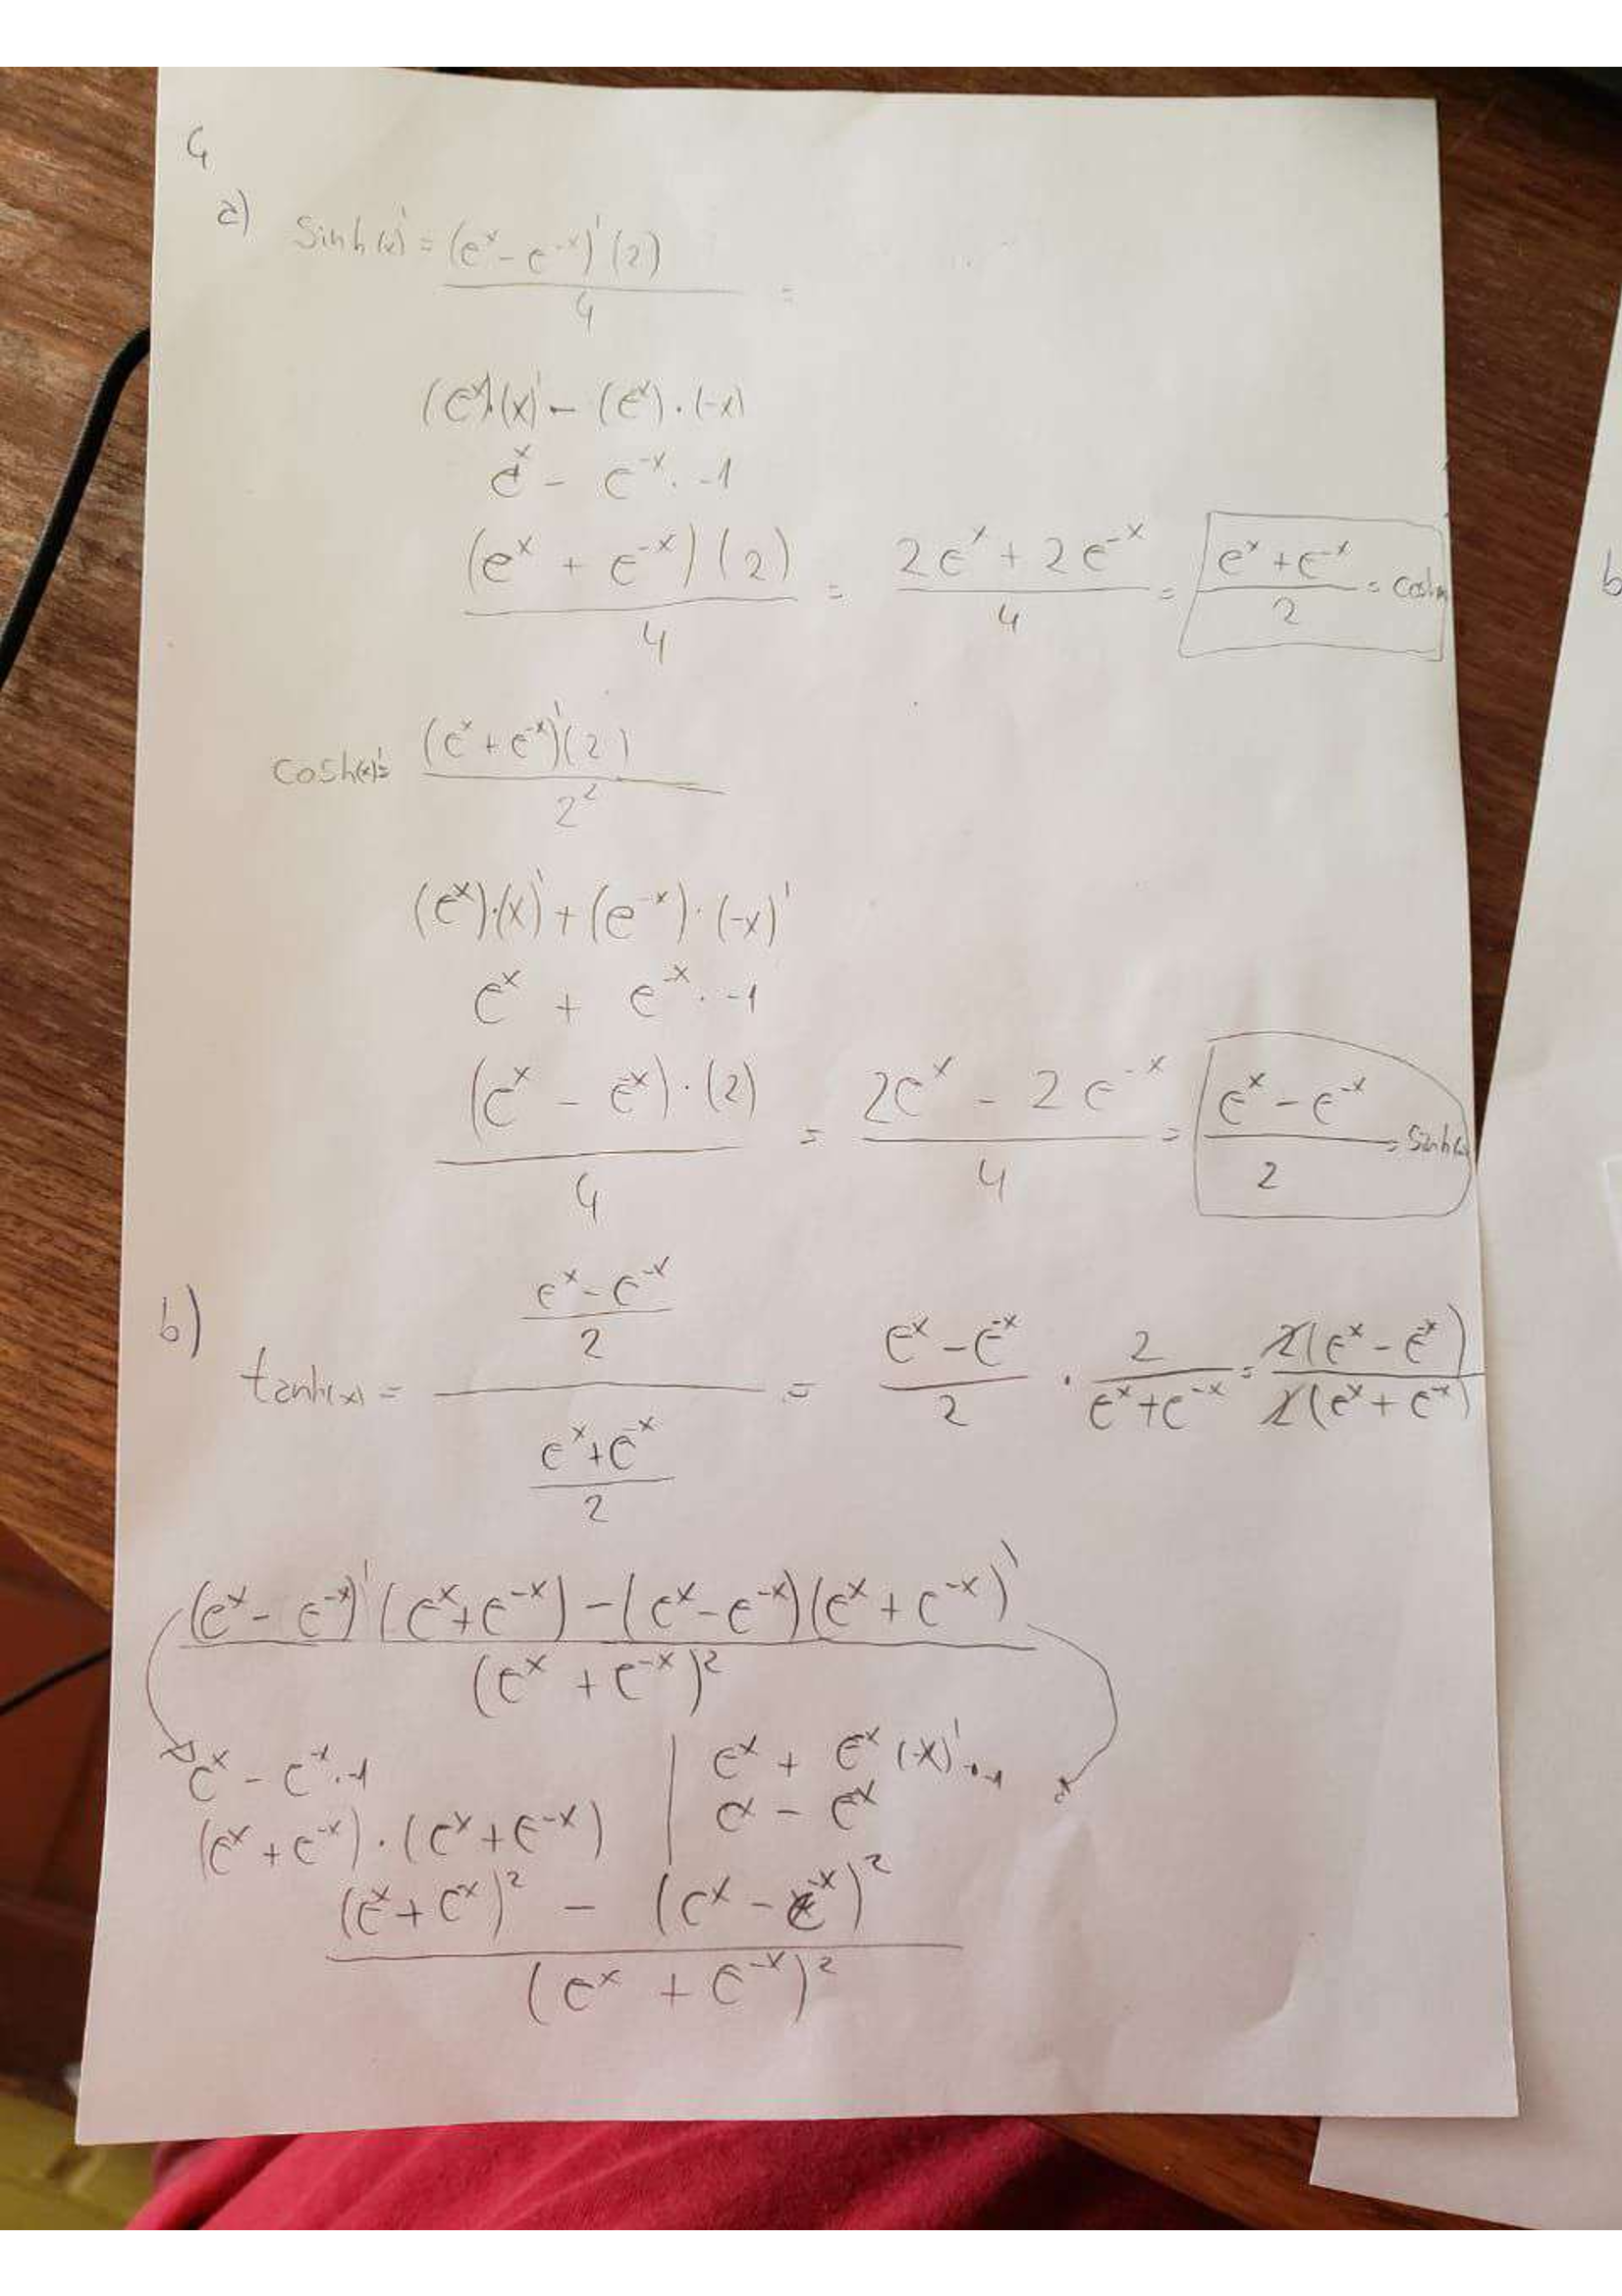 4
a) Sinh(x)' = (e^x - e^-x)'(2) / 4 =
(e^x)·(x)' - (e^x)·(-x)
e^x - e^-x · -1
(e^x + e^-x)(2) / 4 = 2e^x + 2e^-x / 4 = e^x + e^-x / 2 = cosh(x)
cosh(x)' = (e^x + e^-x)'(2) / 2^2
(e^x)·(x)' + (e^-x)·(-x)'
e^x + e^-x · -1
(e^x - e^-x)·(2) / 4 = 2e^x - 2e^-x / 4 = e^x - e^-x / 2 = Sinh(x)
b) tanh(x) = (e^x - e^-x / 2) / (e^x + e^-x / 2) = e^x - e^-x / 2 · 2 / e^x + e^-x = 2(e^x - e^-x) / 2(e^x + e^-x)
(e^x - e^-x)'(e^x + e^-x) - (e^x - e^-x)(e^x + e^-x)' / (e^x + e^-x)^2
e^x - e^-x · -1 | e^x + e^x (-x)' · -1
(e^x + e^-x)·(e^x + e^-x) | e^x - e^-x
(e^x + e^-x)^2 - (e^x - e^-x)^2 / (e^x + e^-x)^2
b